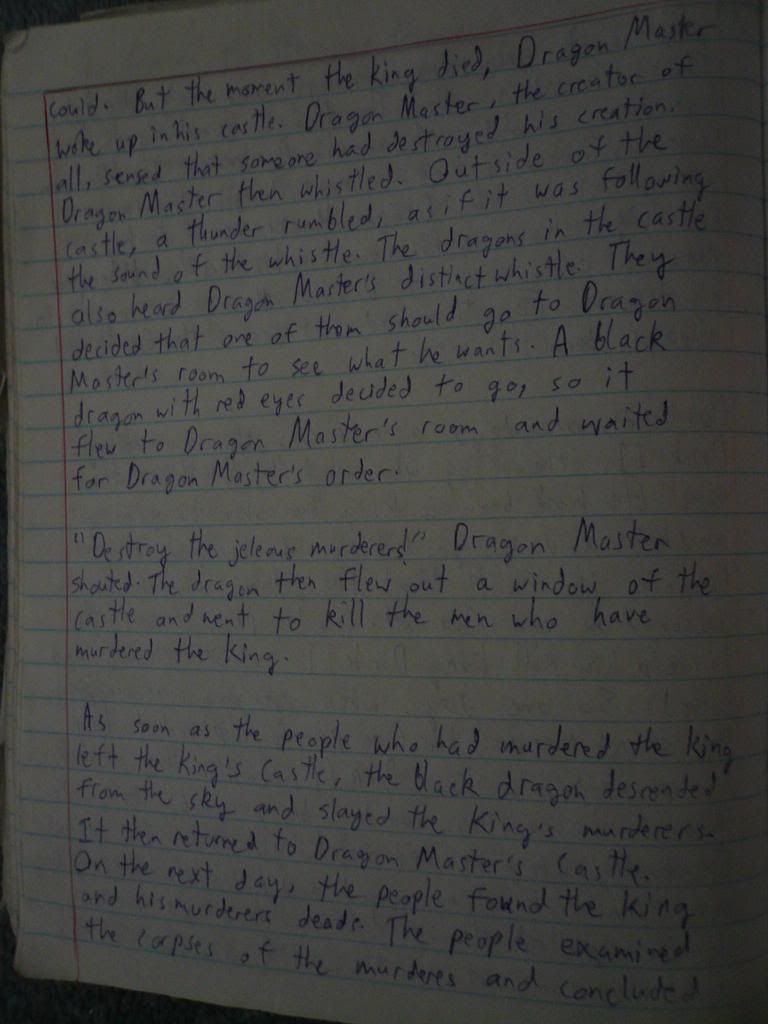 could. But the moment the king died, Dragon Master
woke up in his castle. Dragon Master, the creator of
all, sensed that someone had destroyed his creation.
Dragon Master then whistled. Outside of the
castle, a thunder rumbled, as if it was following
the sound of the whistle. The dragons in the castle
also heard Dragon Master's distinct whistle. They
decided that one of them should go to Dragon
Master's room to see what he wants. A black
dragon with red eyes decided to go, so it
flew to Dragon Master's room and waited
for Dragon Master's order.
"Destroy the jeleous murderers!" Dragon Master
shouted. The dragon then flew out a window of the
castle and went to kill the men who have
murdered the king.
As soon as the people who had murdered the king
left the King's Castle, the black dragon descended
from the sky and slayed the King's murderers.
It then returned to Dragon Master's Castle.
On the next day, the people found the King
and his murderers dead. The people examined
the corpses of the murderes and concluded